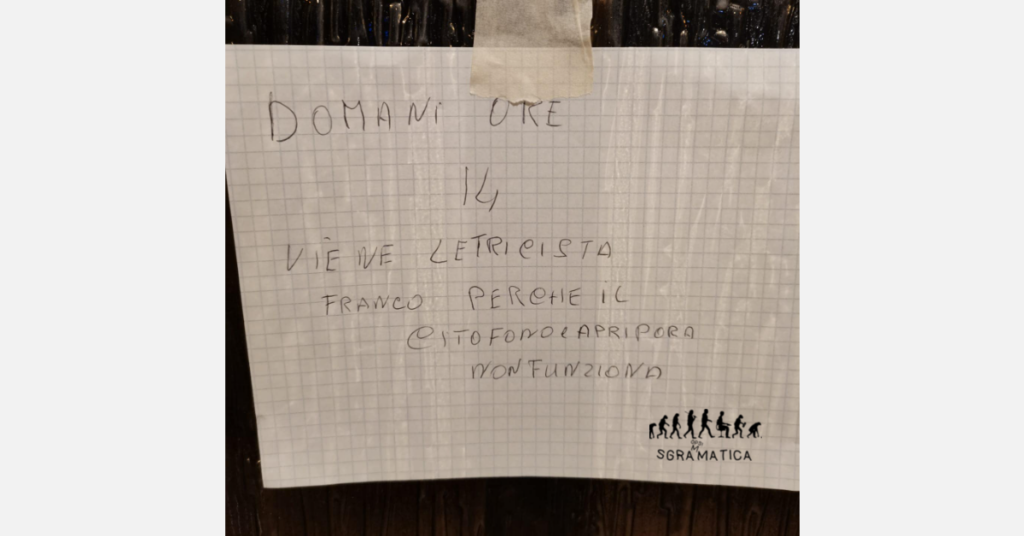 DOMANI ORE
14
VIENE LETRICISTA
FRANCO PERCHE IL
CITOFONO E APRIPORA
NON FUNZIONA
SGRAMMATICA